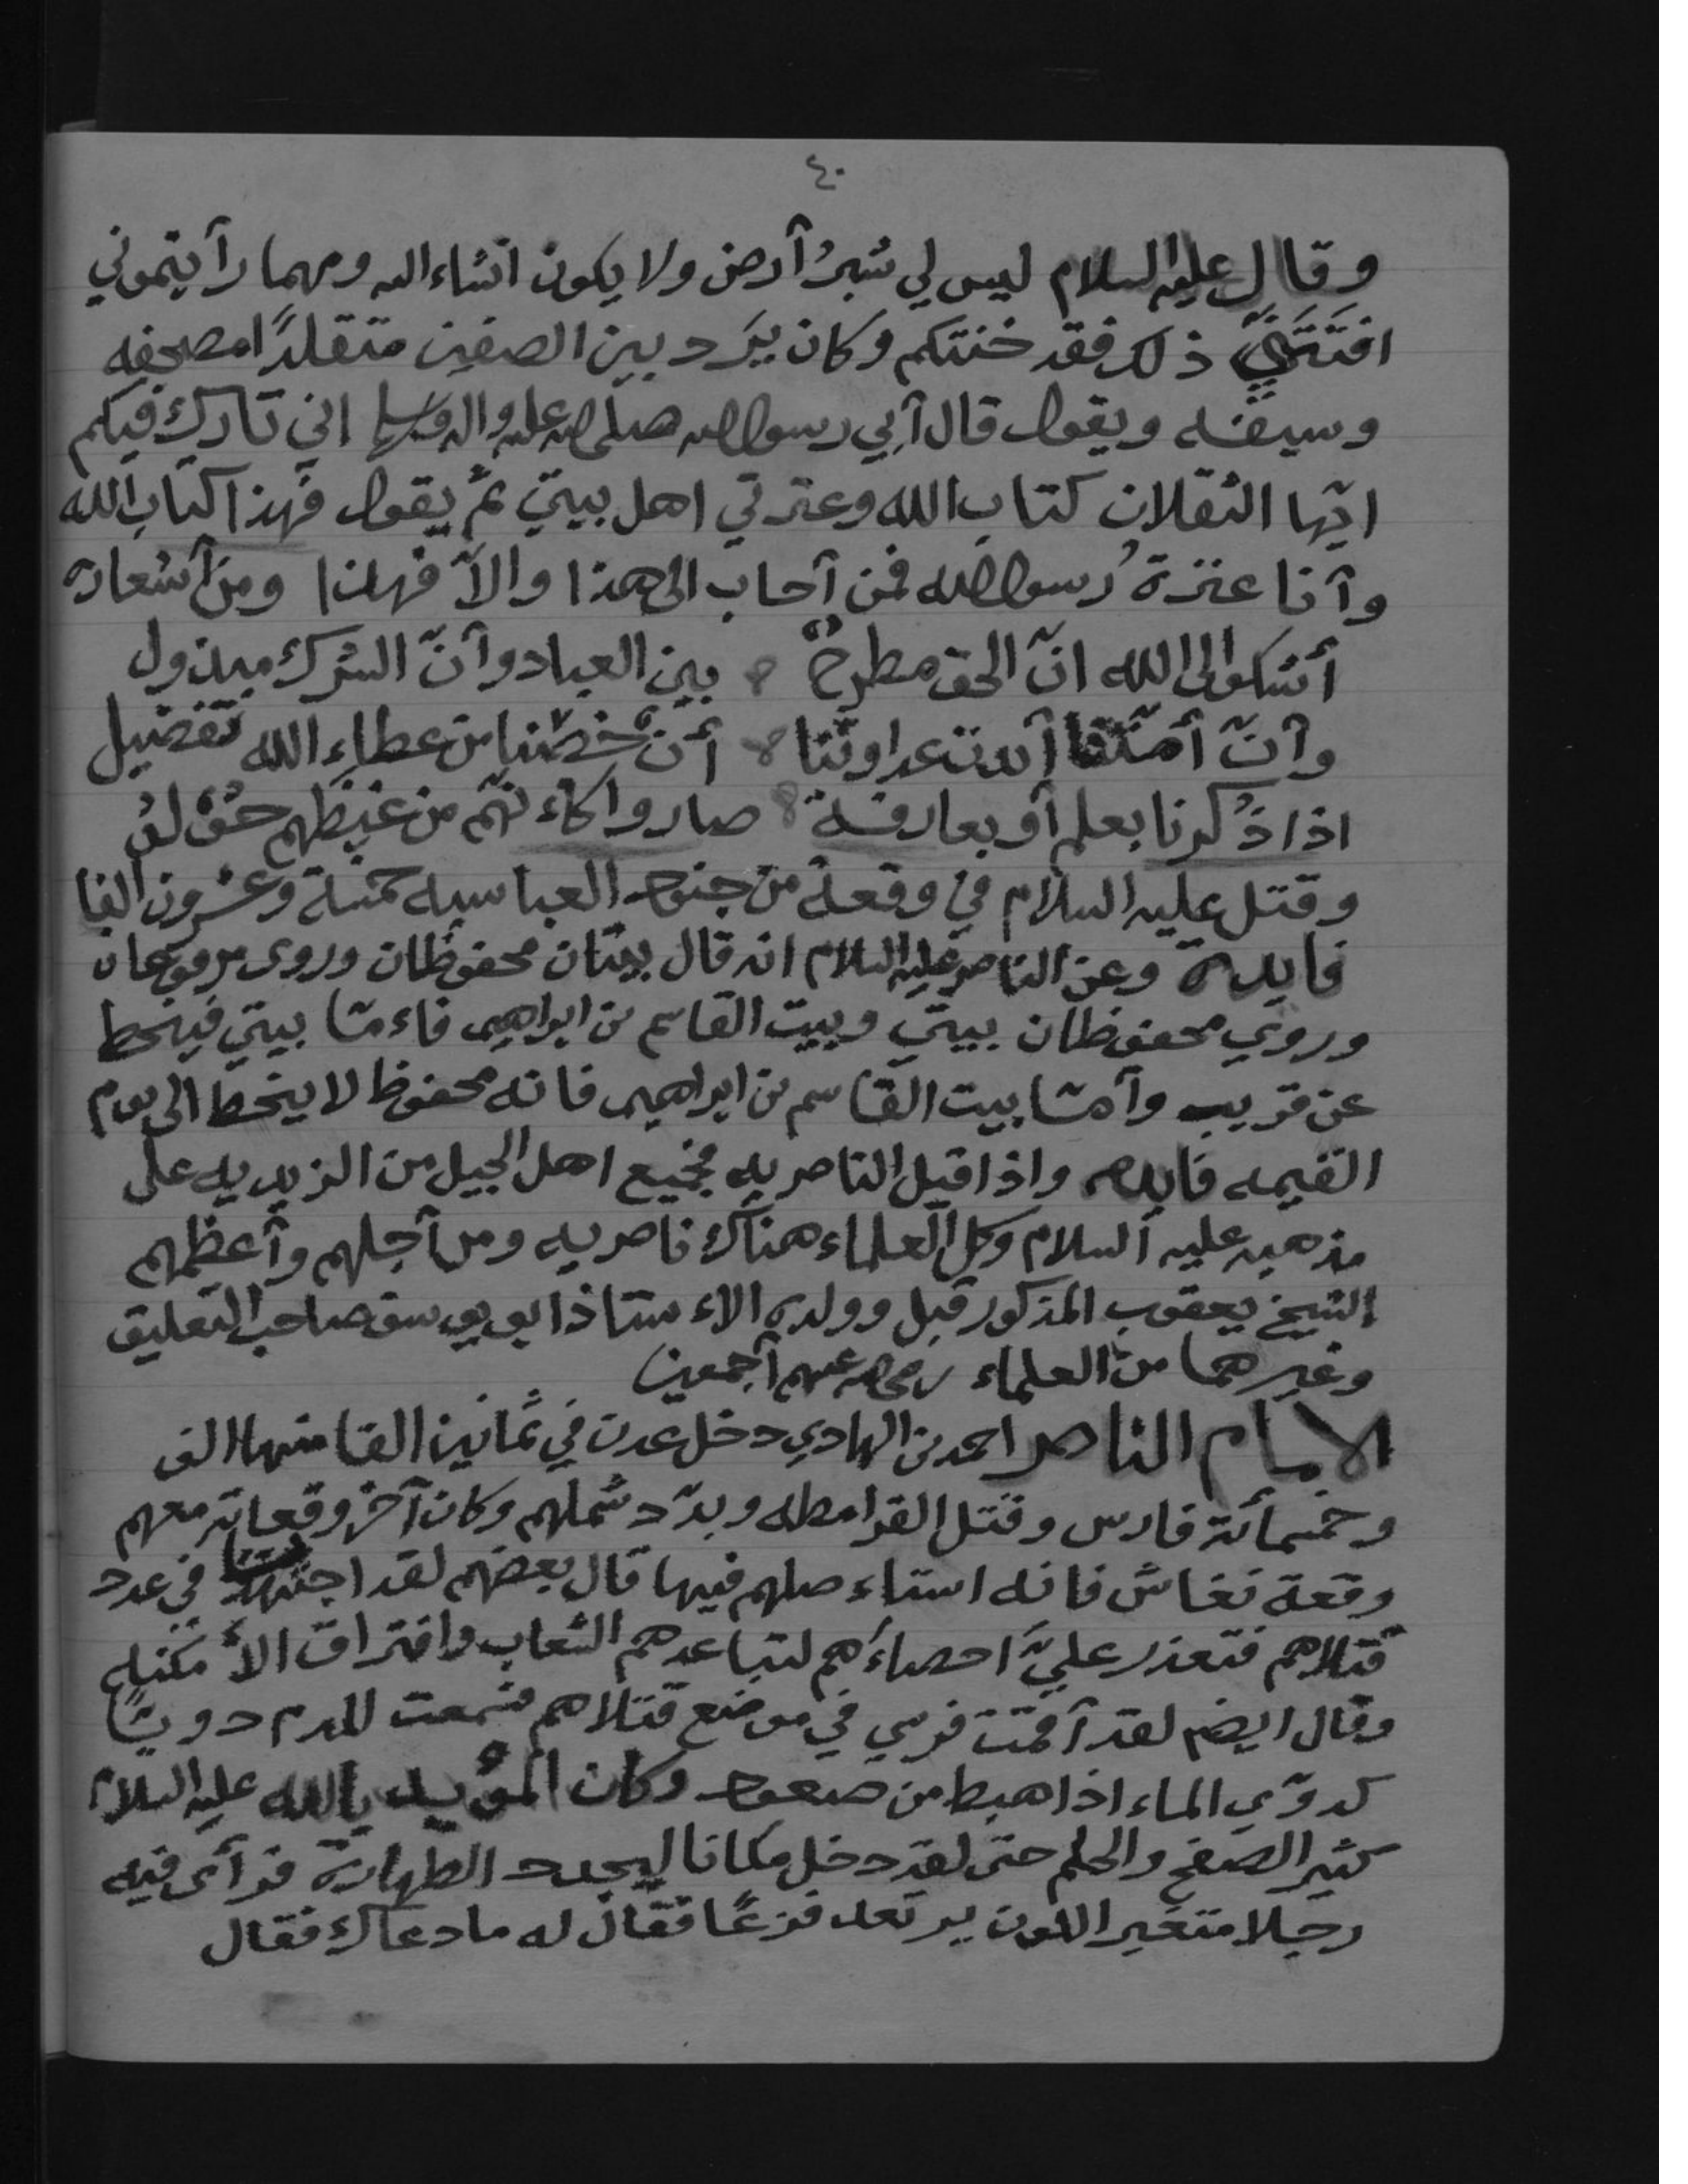 ٤٠
وقال عليه السلام ليس لي شبرُ أرض ولا يكون انشاء الله ومهما رأيتموني
ذلك فقد خنتكم وكان يَرد بين الصفين متقلدًا مصحفه
وسيفه ويقول قال أبي رسول الله صلى الله عليه واله وسلم اني تارك فيكم
ايّها الثقلان كتاب الله وعترتي اهل بيتي ثم يقول فهذا كتاب الله
وأنا عترة رسول الله فمن أجاب الى هذا والاّ فهذا ومن أشعاره
أشكوا الى الله انّ الحق مطرحٌ بين العباد وأنّ الشرك مبذول
وأنّ أمتنا أبدت عداوتنا أن خصّنا من عطاء الله تفضيل
اذا ذُكرنا بعلم أو بعارفة صاروا كاءنهم من غيظهم حُوْلُ
وقتل عليه السلام في وقعة من جنود العباسيه خمسة وعشرون الفا
فايدة وعن الناصر عليه السلام انه قال بيتان محفوظان وروى مرفوعان
وروي محفوظان بيتي وبيت القاسم بن ابراهيم فاءما بيتي فينحط
عن قريب وأما بيت القاسم بن ابراهيم فانه محفوظ لا ينحط الى يوم
القيمه فايده واذا قيل الناصريه فجميع اهل الجيل من الزيديه على
مذهبه عليه السلام وكل العلماء هناك ناصريه ومن أجلهم وأعظمهم
الشيخ يعقوب المذكور قبل وولده الاءستاذ ابو يوسف صاحب التعليق
وغيرهما من العلماء رضي الله عنهم أجمعين
الامام الناصر احمد بن الهادي دخل عدن في ثمانين الفا منها الف
وخمسمائة فارس وقتل القرامطه وبدّد شملهم وكان آخر وقعاته معهم
وقعة نغاش فانه استاءصلهم فيها قال بعضهم لقد اجتهدت في عدد
قتلاهم فتعذر عليّ احصاءهم لتباعدهم الشعاب وافتراق الأمكنه
وقال ايضم لقد أقمت فرسي في موضع قتلاهم فسمعت للدم دويًا
كدوّي الماء اذا هبط من صعود وكان المؤيد بالله عليه السلام
كثير الصفح والحلم حتى لقد دخل مكانا ليجدد الطهارة فرأى فيه
رجلا متغير اللون يرتعد فزعًا فقال له ما دعاك فقال